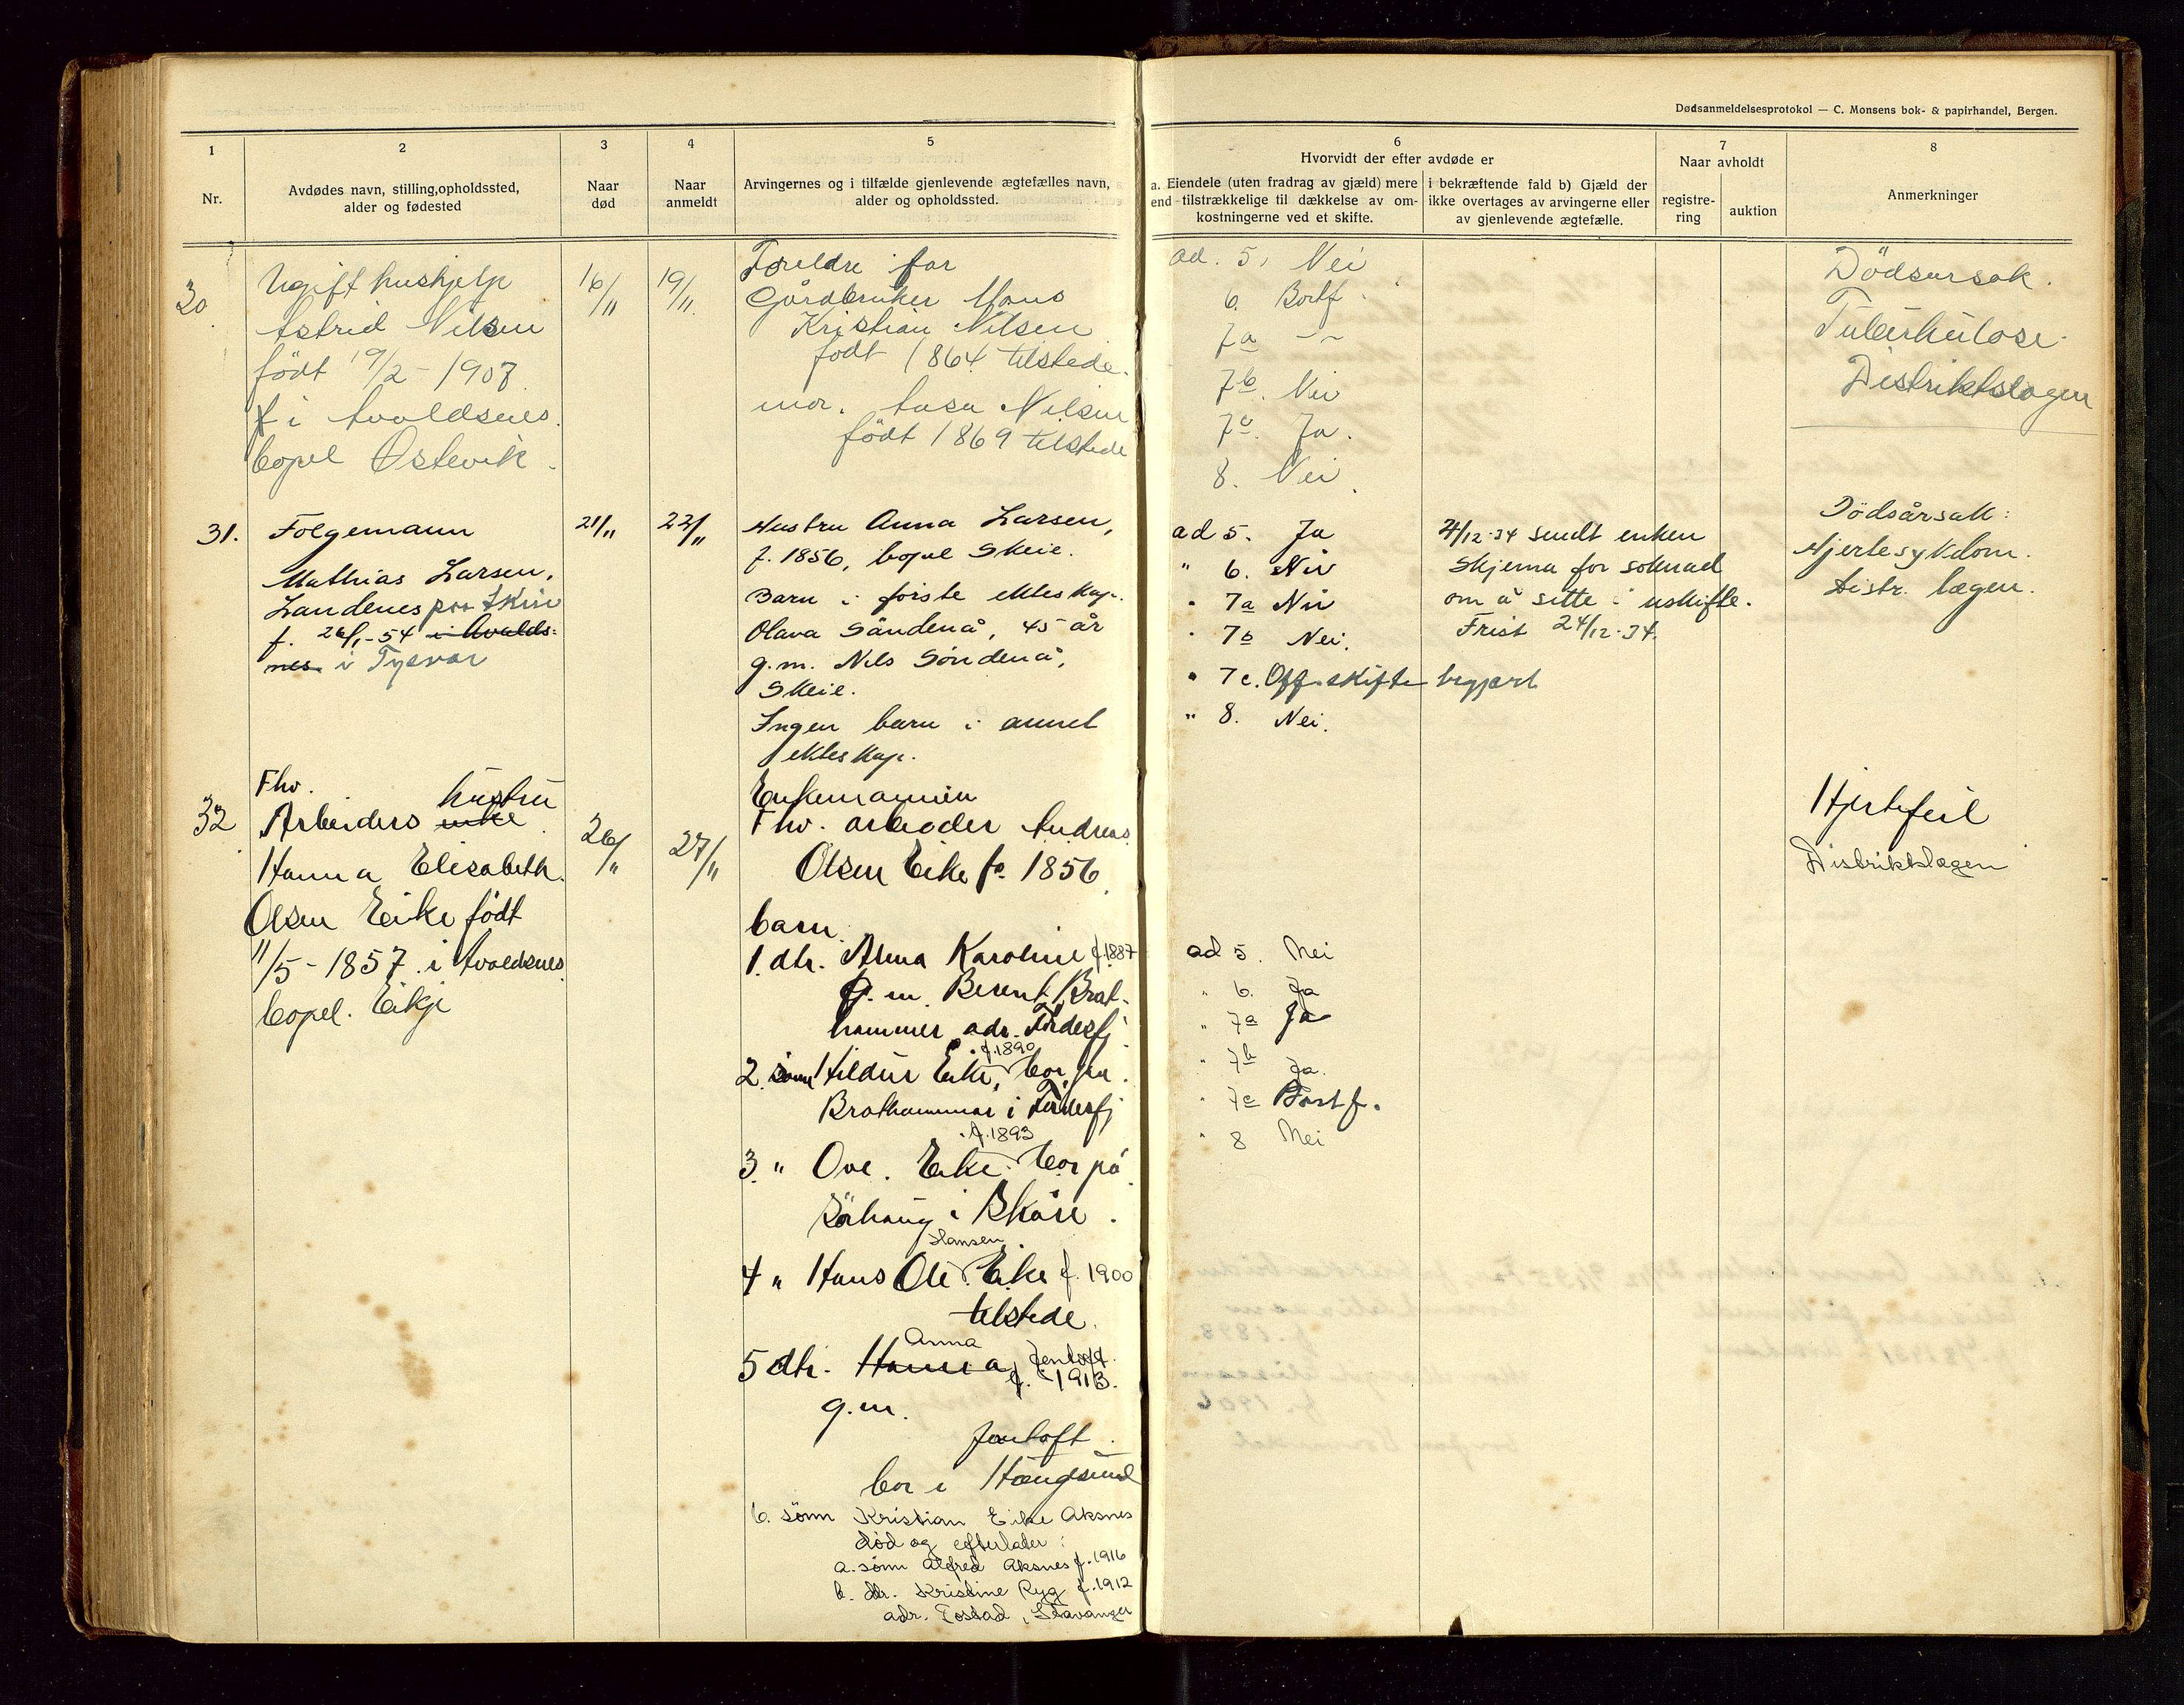 Dødsanmeldelsesprotokol — C. Monsens bok- & papirhandel, Bergen.
1
Nr.
2
Avdødes navn, stilling, opholdssted,
alder og fødested
3
Naar
død
4
Naar
anmeldt
5
Arvingernes og i tilfælde gjenlevende ægtefælles navn,
alder og opholdssted.
6
Hvorvidt der efter avdøde er
a. Eiendele (uten fradrag av gjæld) mere
end tilstrækkelige til dækkelse av om-
kostningerne ved et skifte.
i bekræftende fald b) Gjæld der
ikke overtages av arvingerne eller
av gjenlevende ægtefælle.
7
Naar avholdt
registre-
ring
auktion
8
Anmerkninger
30.
Ugift hushjelp
Astrid Nilsen
født 19/2 - 1907
f i Avaldsnes.
bopel Østevik.
16/11
19/11.
Foreldre far
Gårdbruker Mons
Kristian Nilsen
født 1864 tilstede.
mor. Aasa Nilsen
født 1869 tilstede
ad. 5, Nei
6. Bortf.
7a -~
7b. Nei
7c. Ja.
8. Nei.
Dödsarsak.
Tuberkulose.
Distriktslægen
31.
Folgemann
Mathias Larsen,
Landenes paa Skeie
f. 26/1-54 i Avalds-
nes i Tysvar
21/11
22/11
Hustru Anna Larsen,
f. 1856, bopel Skeie.
Barn i forste ekteskap.
Olava Söndenå, 45 år
g.m. Nils Söndenå,
Skeie.
Ingen barn i annet
ekteskap.
ad 5. Ja
" 6. Nei
" 7a Nei
" 7b Nei.
" 7c. Off. skifte begjært
" 8. Nei.
4/12-34 sendt enken
skjema for soknad
om å sitte i uskifte.
Frist 24/12-34.
Dödsårsak:
Hjertesykdom.
Distr. lægen.
32
Fhv.
hustru
Arbeiders enke
Hanna Elisabeth
Olsen Eike født
11/5 - 1857. i Avaldsnes
bopel. Eikje
26/11
27/11
Enkemannen
Fhv. arbeider Andreas
Olsen Eike f. 1856.
barn.
1. dtr. Alma Karoline f. 1887
g. m. Berent Brat-
hammer adr. Fördesfj.
f. 1890
2. sönn Hildur Eike, bor på.
Brathammar i Fördesfj
f. 1893
3. " Ove. Eike. bor på
i Skåre.
Hansen
4 " Hans Ole Eike f. 1900
tilstede.
Anna
5 dtr. Hanna Jentoft
f. 1913.
g.m.
Jentoft.
bor i Haugesund
6. sönn Kristian Eike Aksnes
död og efterlater:
a. sönn Alfred Aksnes f. 1916
b. dtr. Kristine Ryg f. 1912
adr. Tostad, Stavanger
ad 5. Nei
" 6. Ja
" 7a Ja
" 7b Ja.
" 7c Bortf.
" 8 Nei
Hjertefeil
Distriktslægen